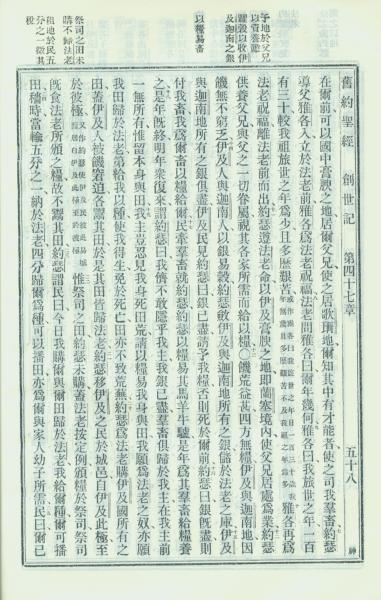 予地於父兄
以資養贍
糴穀以收伊
及迦南之銀
以糧易畜
祭司之田未
購不歸法老
租地於民五
分之一徵其
稅
舊約聖經 創世記 第四十七章 五十八
在爾前可以國中膏腴之地居爾父兄使之居歌珊地爾知其中有才能者使之司我羣畜約瑟
導父雅各入立於法老前雅各爲法老祝福法老問雅各曰爾年幾何雅各曰我旅世之年一百
有三十較我祖旅世之年爲少且多歷艱苦 雅各再爲
法老祝福離法老前而出約瑟遵法老命以伊及膏腴之地卽蘭塞境內使父兄居處爲業約瑟
供養父兄與父之一切眷屬視其各家所需而給以糧○饑荒益甚四方無糧伊及與迦南地因
饑無不窮乏伊及人與迦南人以銀易穀約瑟斂伊及與迦南地所有之銀儲於法老之庫伊及
與迦南地所有之銀俱盡伊及民見約瑟曰銀已盡請予我糧否則死於爾前約瑟曰銀旣盡則
付我畜我爲爾畜以糧給爾民牽羣畜就約瑟約瑟以糧易其馬羊牛驢是年爲其羣畜給糧養
之是年旣終明年衆復來謂約瑟曰我儕不敢隱乎我主我銀已盡羣畜俱歸於我主在我主前
一無所有惟留本身與田我主豈忍見我身死田荒請以糧易我身與田我甘爲法老之奴亦願
我田歸於法老第給我以種使我得生免於死亡田亦不致荒蕪約瑟爲法老購伊及國所有之
田蓋伊及人被饑窘迫各鬻其田於是其田皆歸法老約瑟移伊及之民於城邑自伊及此極至
於彼極 惟祭司之田約瑟未購蓋法老按定例頒糧於祭司祭司
旣食法老所頒之糧故不鬻其田約瑟謂民曰今日我購爾與爾田歸於法老我給爾種爾可播
田穡時當輸五分之一納於法老四分歸爾爲種可以播田亦爲爾與家人幼子所需民曰爾已